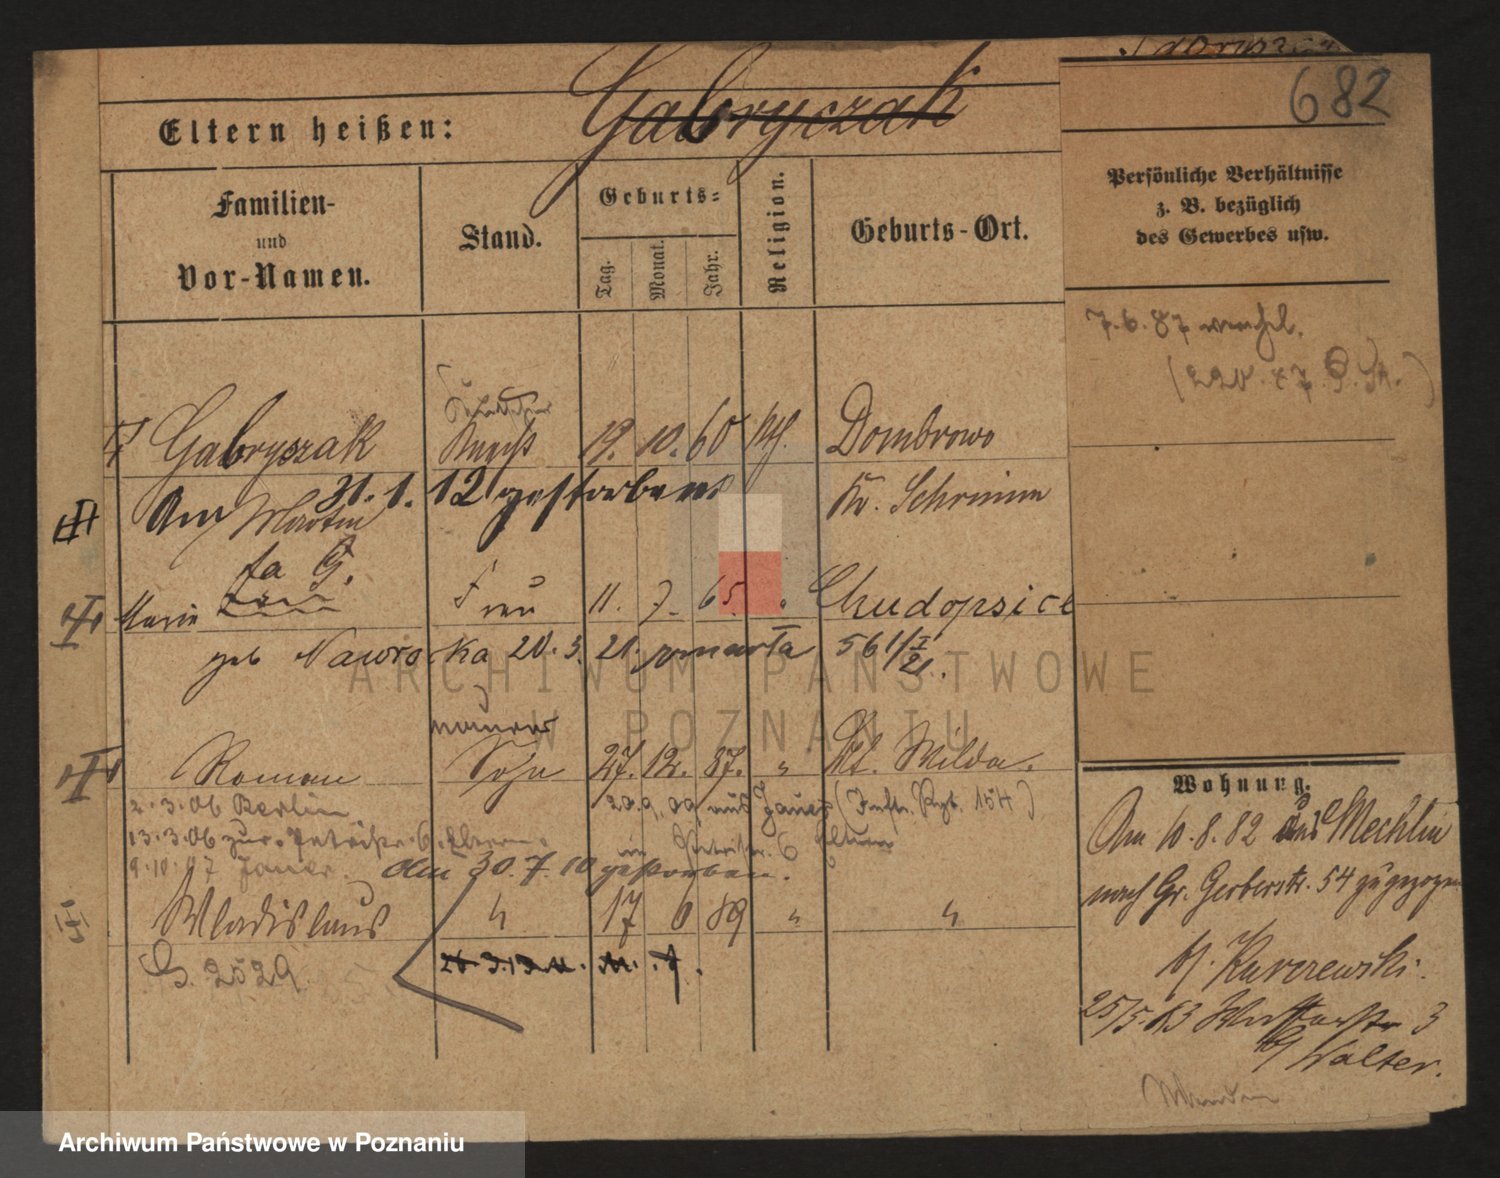 682
Eltern heißen:
Gabryczak
Familien-
und
Vor-Namen.
Stand.
Geburts-
Tag.
Monat.
Jahr.
Religion.
Geburts-Ort.
Persönliche Verhältnisse
z. B. bezüglich
des Gewerbes usw.
7.6.87
Gabryszak
Knecht 19. 10. 60 kth. Dombrowo
Am 31. 1. 12 gestorben
Martin
Kr. Schrimm
Marie
Frau 11. 7. 65. Chudopsice
geb Nawrocka 20. 3. 21. zmarła 561/I
21.
Roman Sohn 27. 12. 87. " Wilda.
2.3.06 Berlin 20.9.09 aus Jauer (Inftr. Rgt. 154)
13.3.06 zur. 6. Eltern.
9.10.07 Jauer. den 30.7.10 gestorben.
Wladislaus " 17 6 89 " "
G. 2529
26.3.13
Wohnung.
Am 10.8.82 aus Mechlin
nach Gr. Gerberstr. 54 zugezogen
b/. Kurzewski.
25/5.83 3
b/ Walter.
ARCHIWUM PAŃSTWOWE
W POZNANIU
Archiwum Państwowe w Poznaniu